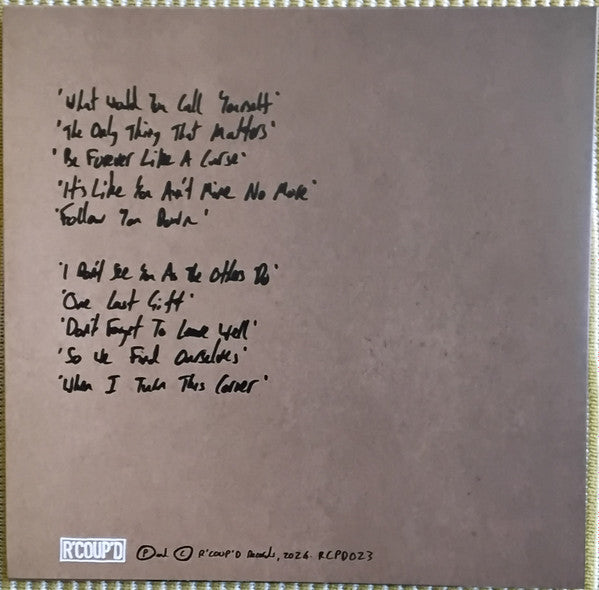 'What Would You Call Yourself'
'The Only Thing That Matters'
'Be Forever Like A Curse'
'It's Like You Ain't Mine No More'
'Follow You Down'
'I Don't See You As The Others Do'
'One Last Gift'
'Don't Forget To Leave Well'
'So We Find Ourselves'
'When I Turn This Corner'
R'COUP'D Ⓟ and Ⓒ R'COUP'D Records, 2026. RCPD023